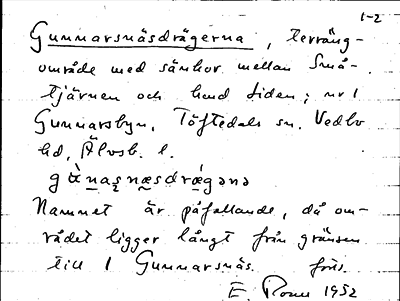 1-2
Gunnarsnäsdrågerna, terräng-
område med sänkor mellan Små-
tjärnen och                ; nr 1
Gunnarsbyn, Töftedals sn, Vedbo
hd, Älvsb. l.
gùnas̥næsdrǽgənə
Namnet är påfallande, då om-
rådet ligger långt från gränsen
till 1 Gunnarsnäs.
E.       1952